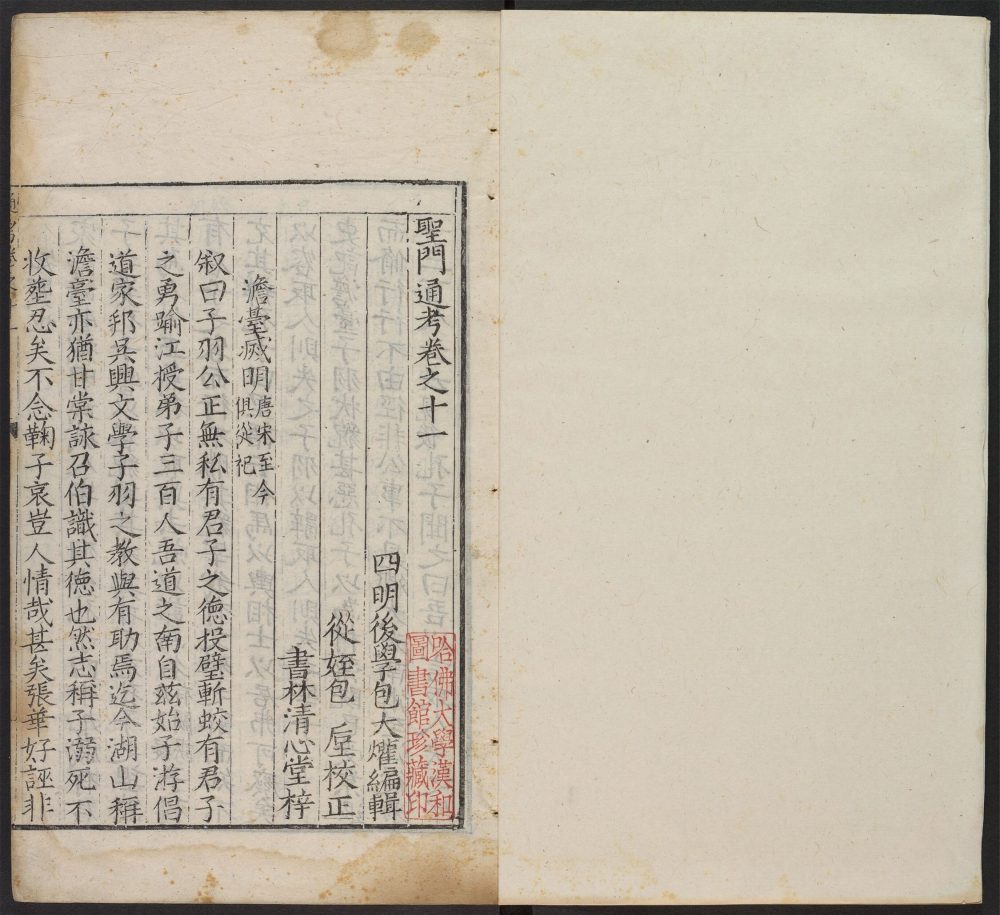 聖門通考卷之十一
四明後學包大爟編輯
從姪包 垕校正
書林清心堂梓
澹臺滅明唐宋至今俱從祀
叙曰子羽公正無私有君子之德投璧斬蛟有君子
之勇踰江授弟子三百人吾道之南自玆始子游倡
道家邦吴興文學子羽之教與有助焉迄今湖山稱
澹臺亦猶甘棠詠召伯識其德也然志稱子溺死不
收塟忍矣不念鞠子哀豈人情哉甚矣張華好誣非
哈佛大學漢和
圖書館珍藏印